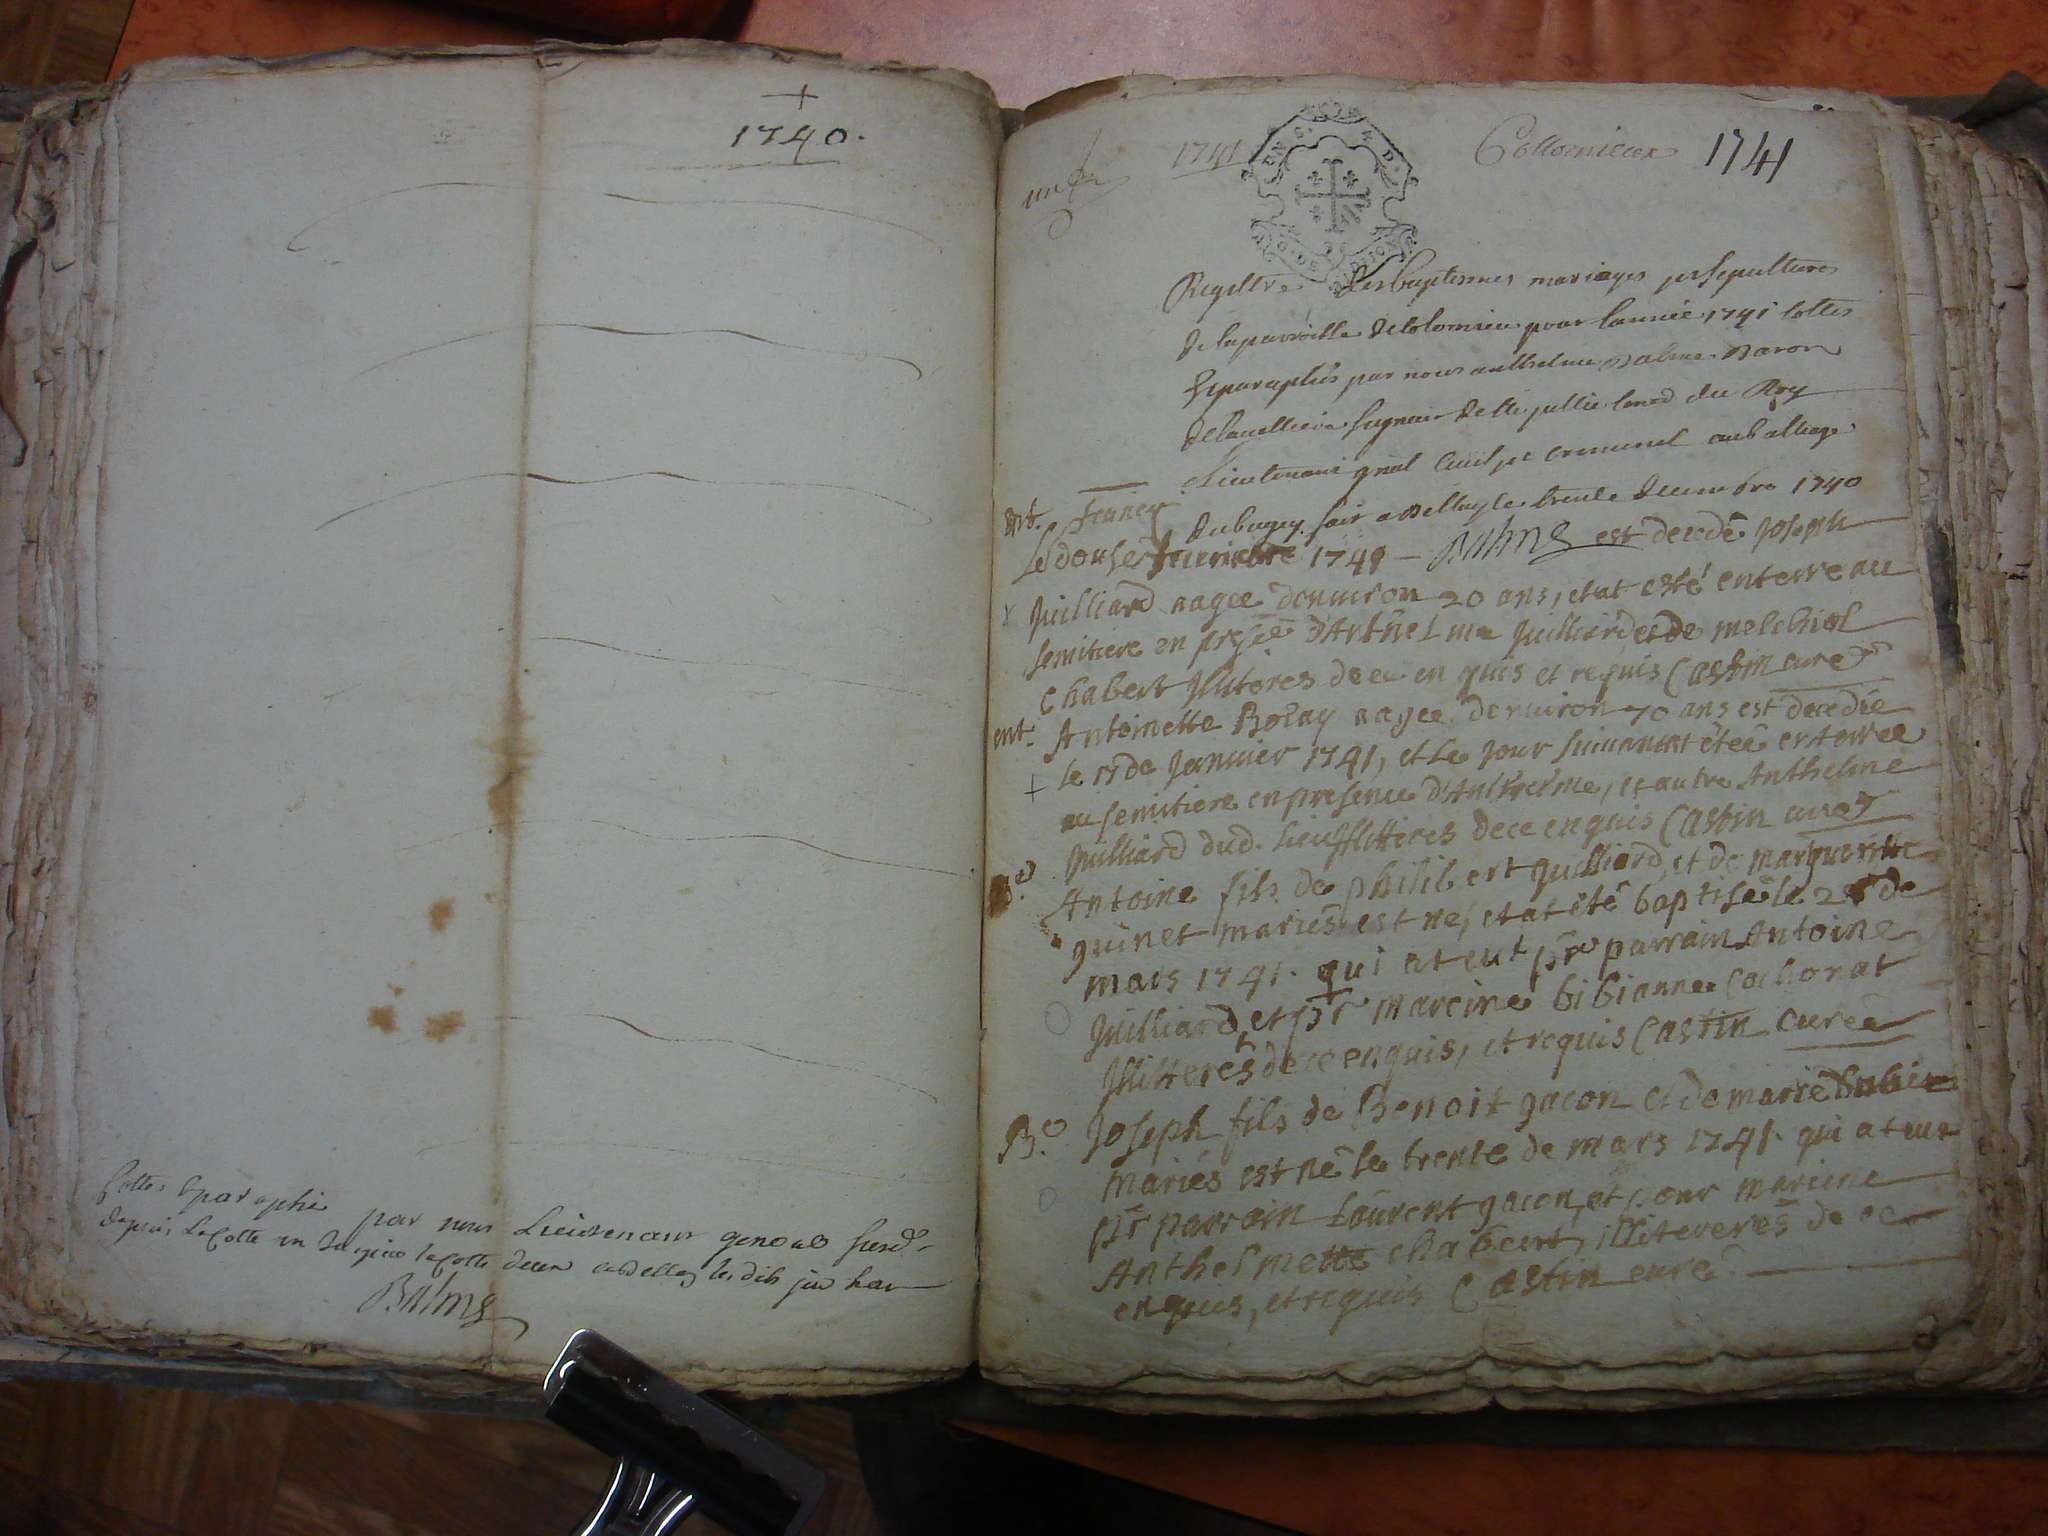 1740.
Cottés & paraphé par nous Lieutenant general susd.
depuis la Cotte un jusques la Cotte deux a Belley les dits jour & an
Balme
1741
Collomieux 1741
Registre des baptesmes mariages et sepultures
de la parroisse de Colomieu pour l'année 1741 cottés
& paraphés par nous anthelme Balme Baron
Seigneur du Roy
Lieutenant gnal Civil et criminel au balliage
du bugey fait a Belley le trente decembre 1740
ent. Feurier
Le douse 1741 — Balme est decedé Joseph
Juilliard aagee denuiron 20 ans, et at esté enterre au
semitiere en d'Anthelme Juilliard et de melchiol
Chabert Jlliteres de ce en quis et requis Castin curé
ent. Antoinette aagee denuiron 70 ans est decedée
Le 17 de Januier 1741, et Le Jour suiuant at étée enterree
au semitiere en presence d'Anthelme, et autre Anthelme
Juilliard dud. Lieu Jlliteres de ce enquis Castin curé
B. Antoine fils de philibert Juilliard, et de marguerite
guinet mariés est né, et at été baptisé le de
mars 1741. qui at eut pr parrain Antoine
Juilliard, et pr mareine bibianne Cochonat
Jlliteres de ce enquis, et requis Castin curé
B. Joseph fils de Benoit gacon et de marie
mariés est né le trente de mars 1741. qui at eut
pr parrain Laurent gacon, et pour mareine
Anthelmette chabert, illiteres de ce
enquis, et requis Castin curé